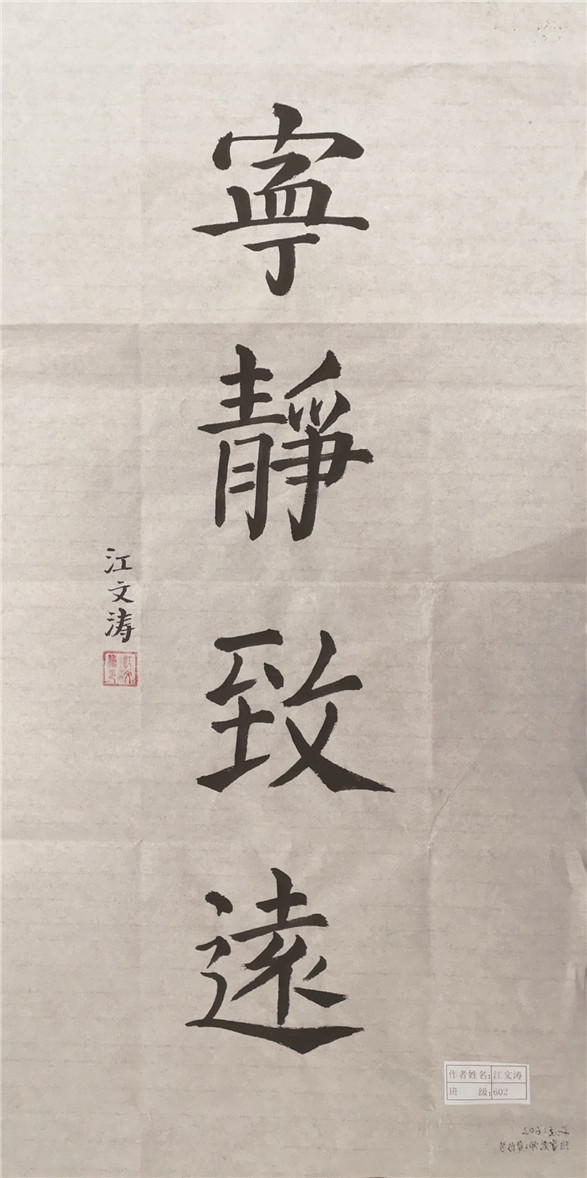 寧靜致遠
江文涛
作者姓名:江文涛
班 级:602